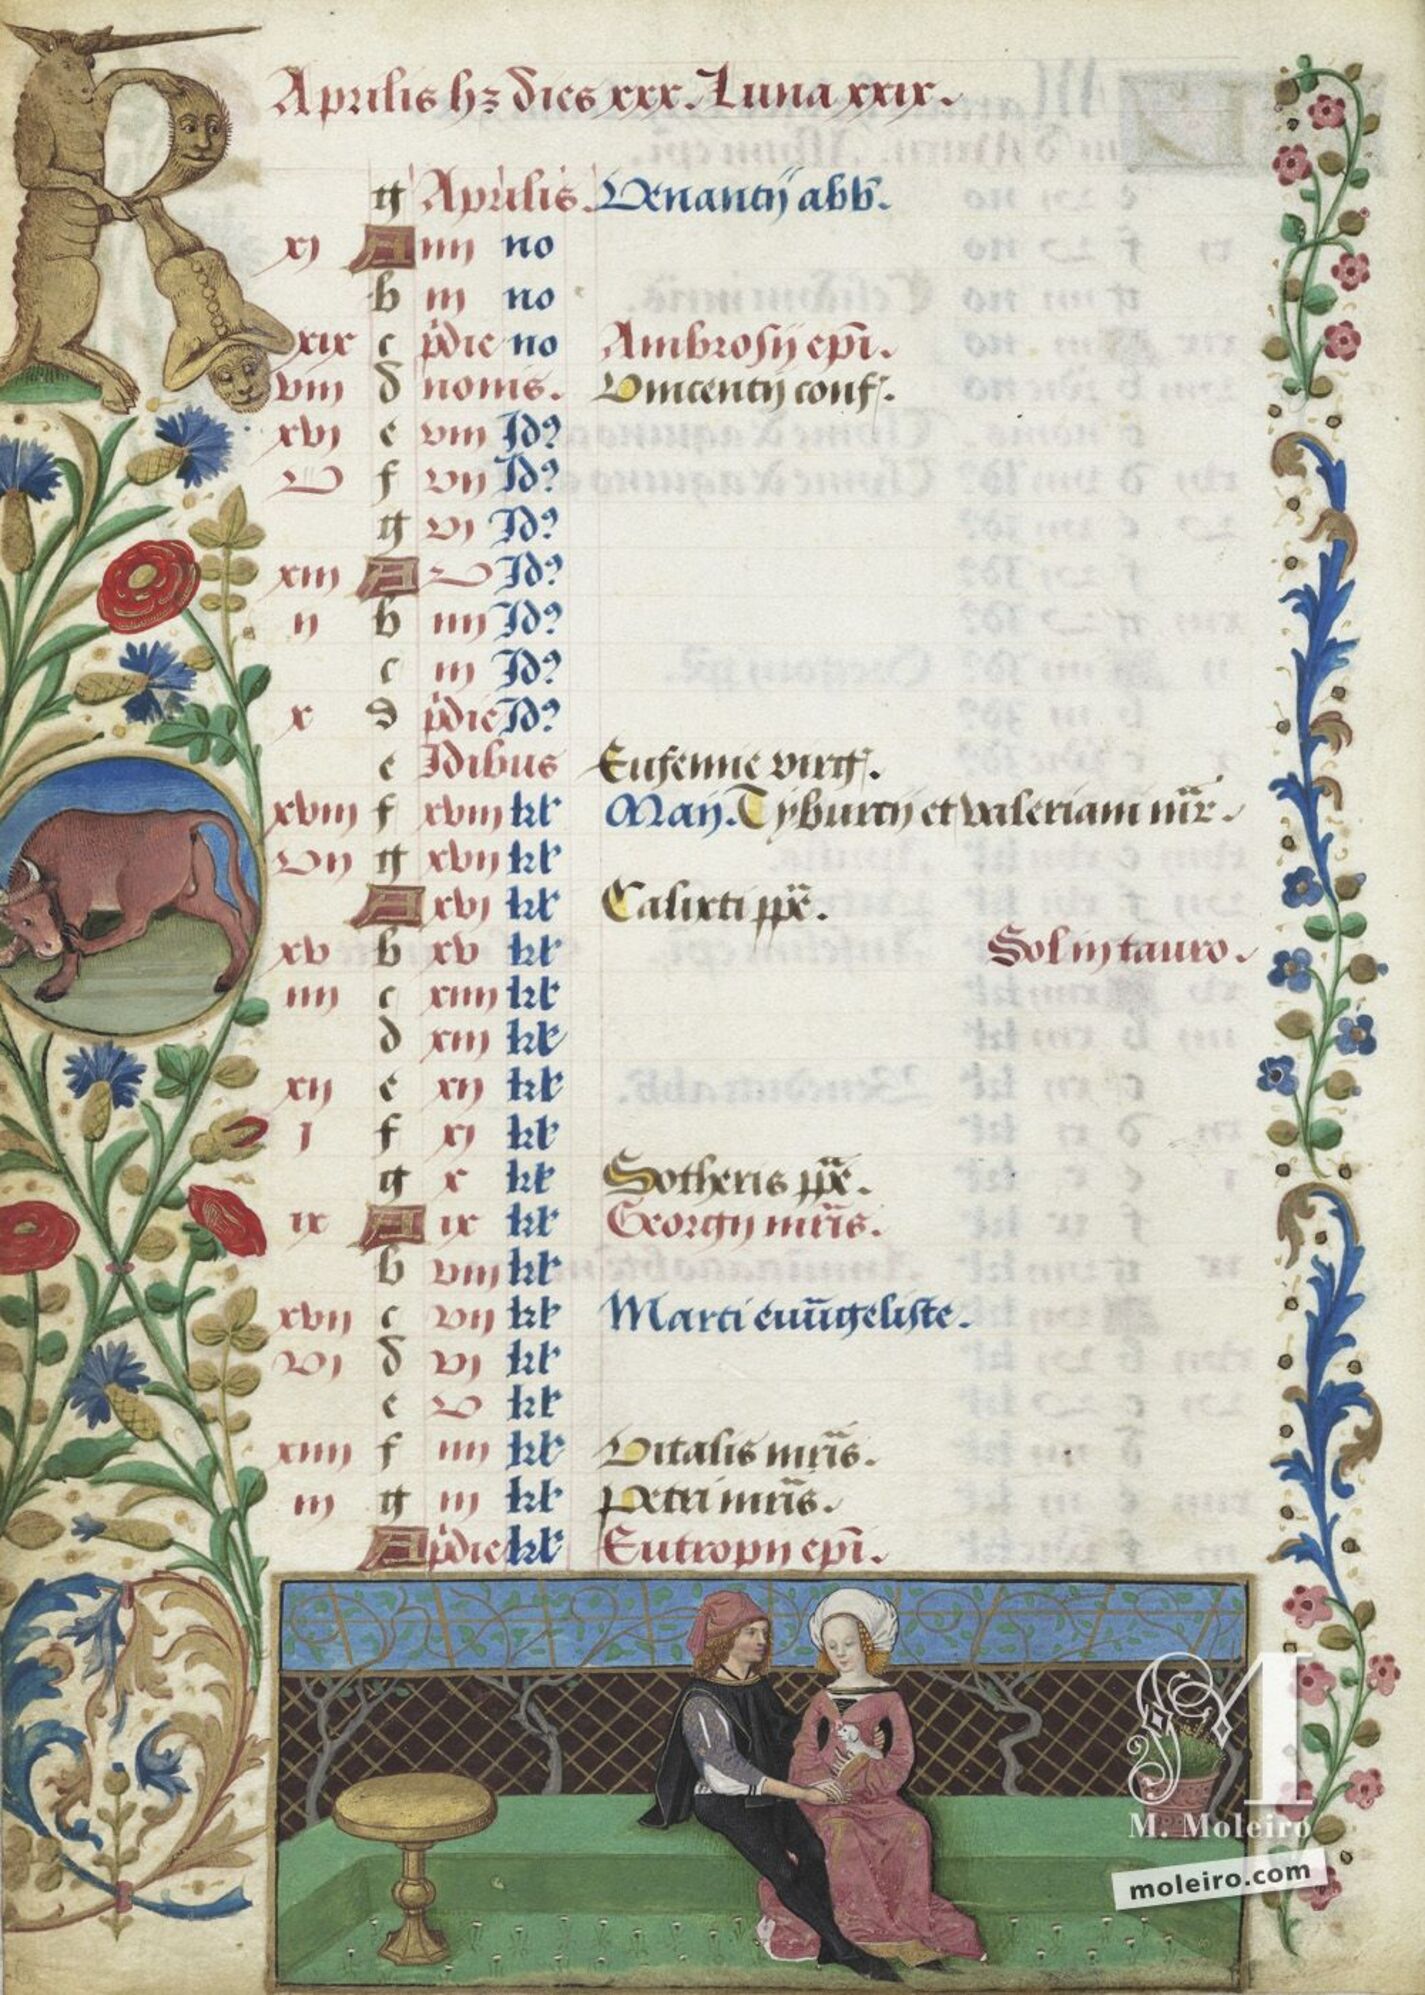 Aprilis hz dies xxx. Luna xxix.
g Aprilis. Venantij abb.
xj A iiij no
b iij no
xix c pdie no Ambrosij epi.
viij d nonis. Vincentij conf.
xvj e viij Id9
v f vij Id9
g vj Id9
xiij A v Id9
ij b iiij Id9
c iij Id9
x d pdie Id9
e Idibus Eufemie virg.
xviij f xviij kl Maij. Tyburcij et valeriani mr.
vij g xvij kl
A xvj kl Calixti ppe.
xv b xv kl Sol in tauro.
iiij c xiiij kl
d xiij kl
xij e xij kl
j f xj kl
g x kl Sotheris ppe.
ix A ix kl Georgij mris.
b viij kl
xvij c vij kl Marci euungeliste.
vj d vj kl
e v kl
xiiij f iiij kl Vitalis mris.
iij g iij kl Petri mris.
A pdie kl Eutropij epi.
M. Moleiro
moleiro.com